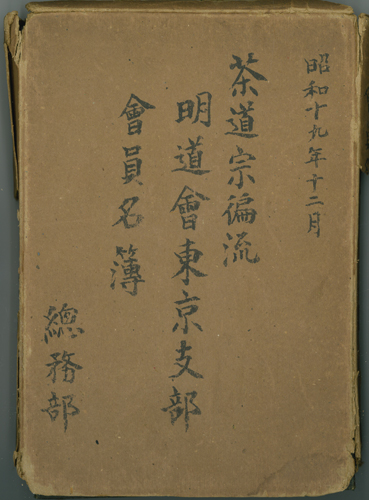 昭和十九年十二月
茶道宗徧流
明道會東京支部
會員名簿
總務部